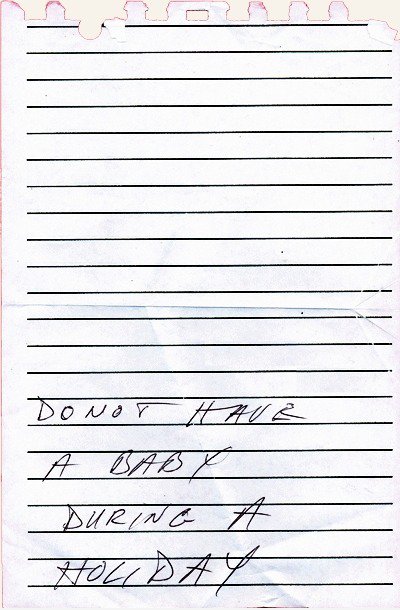 DO NOT HAVE
A BABY
DURING A
HOLIDAY